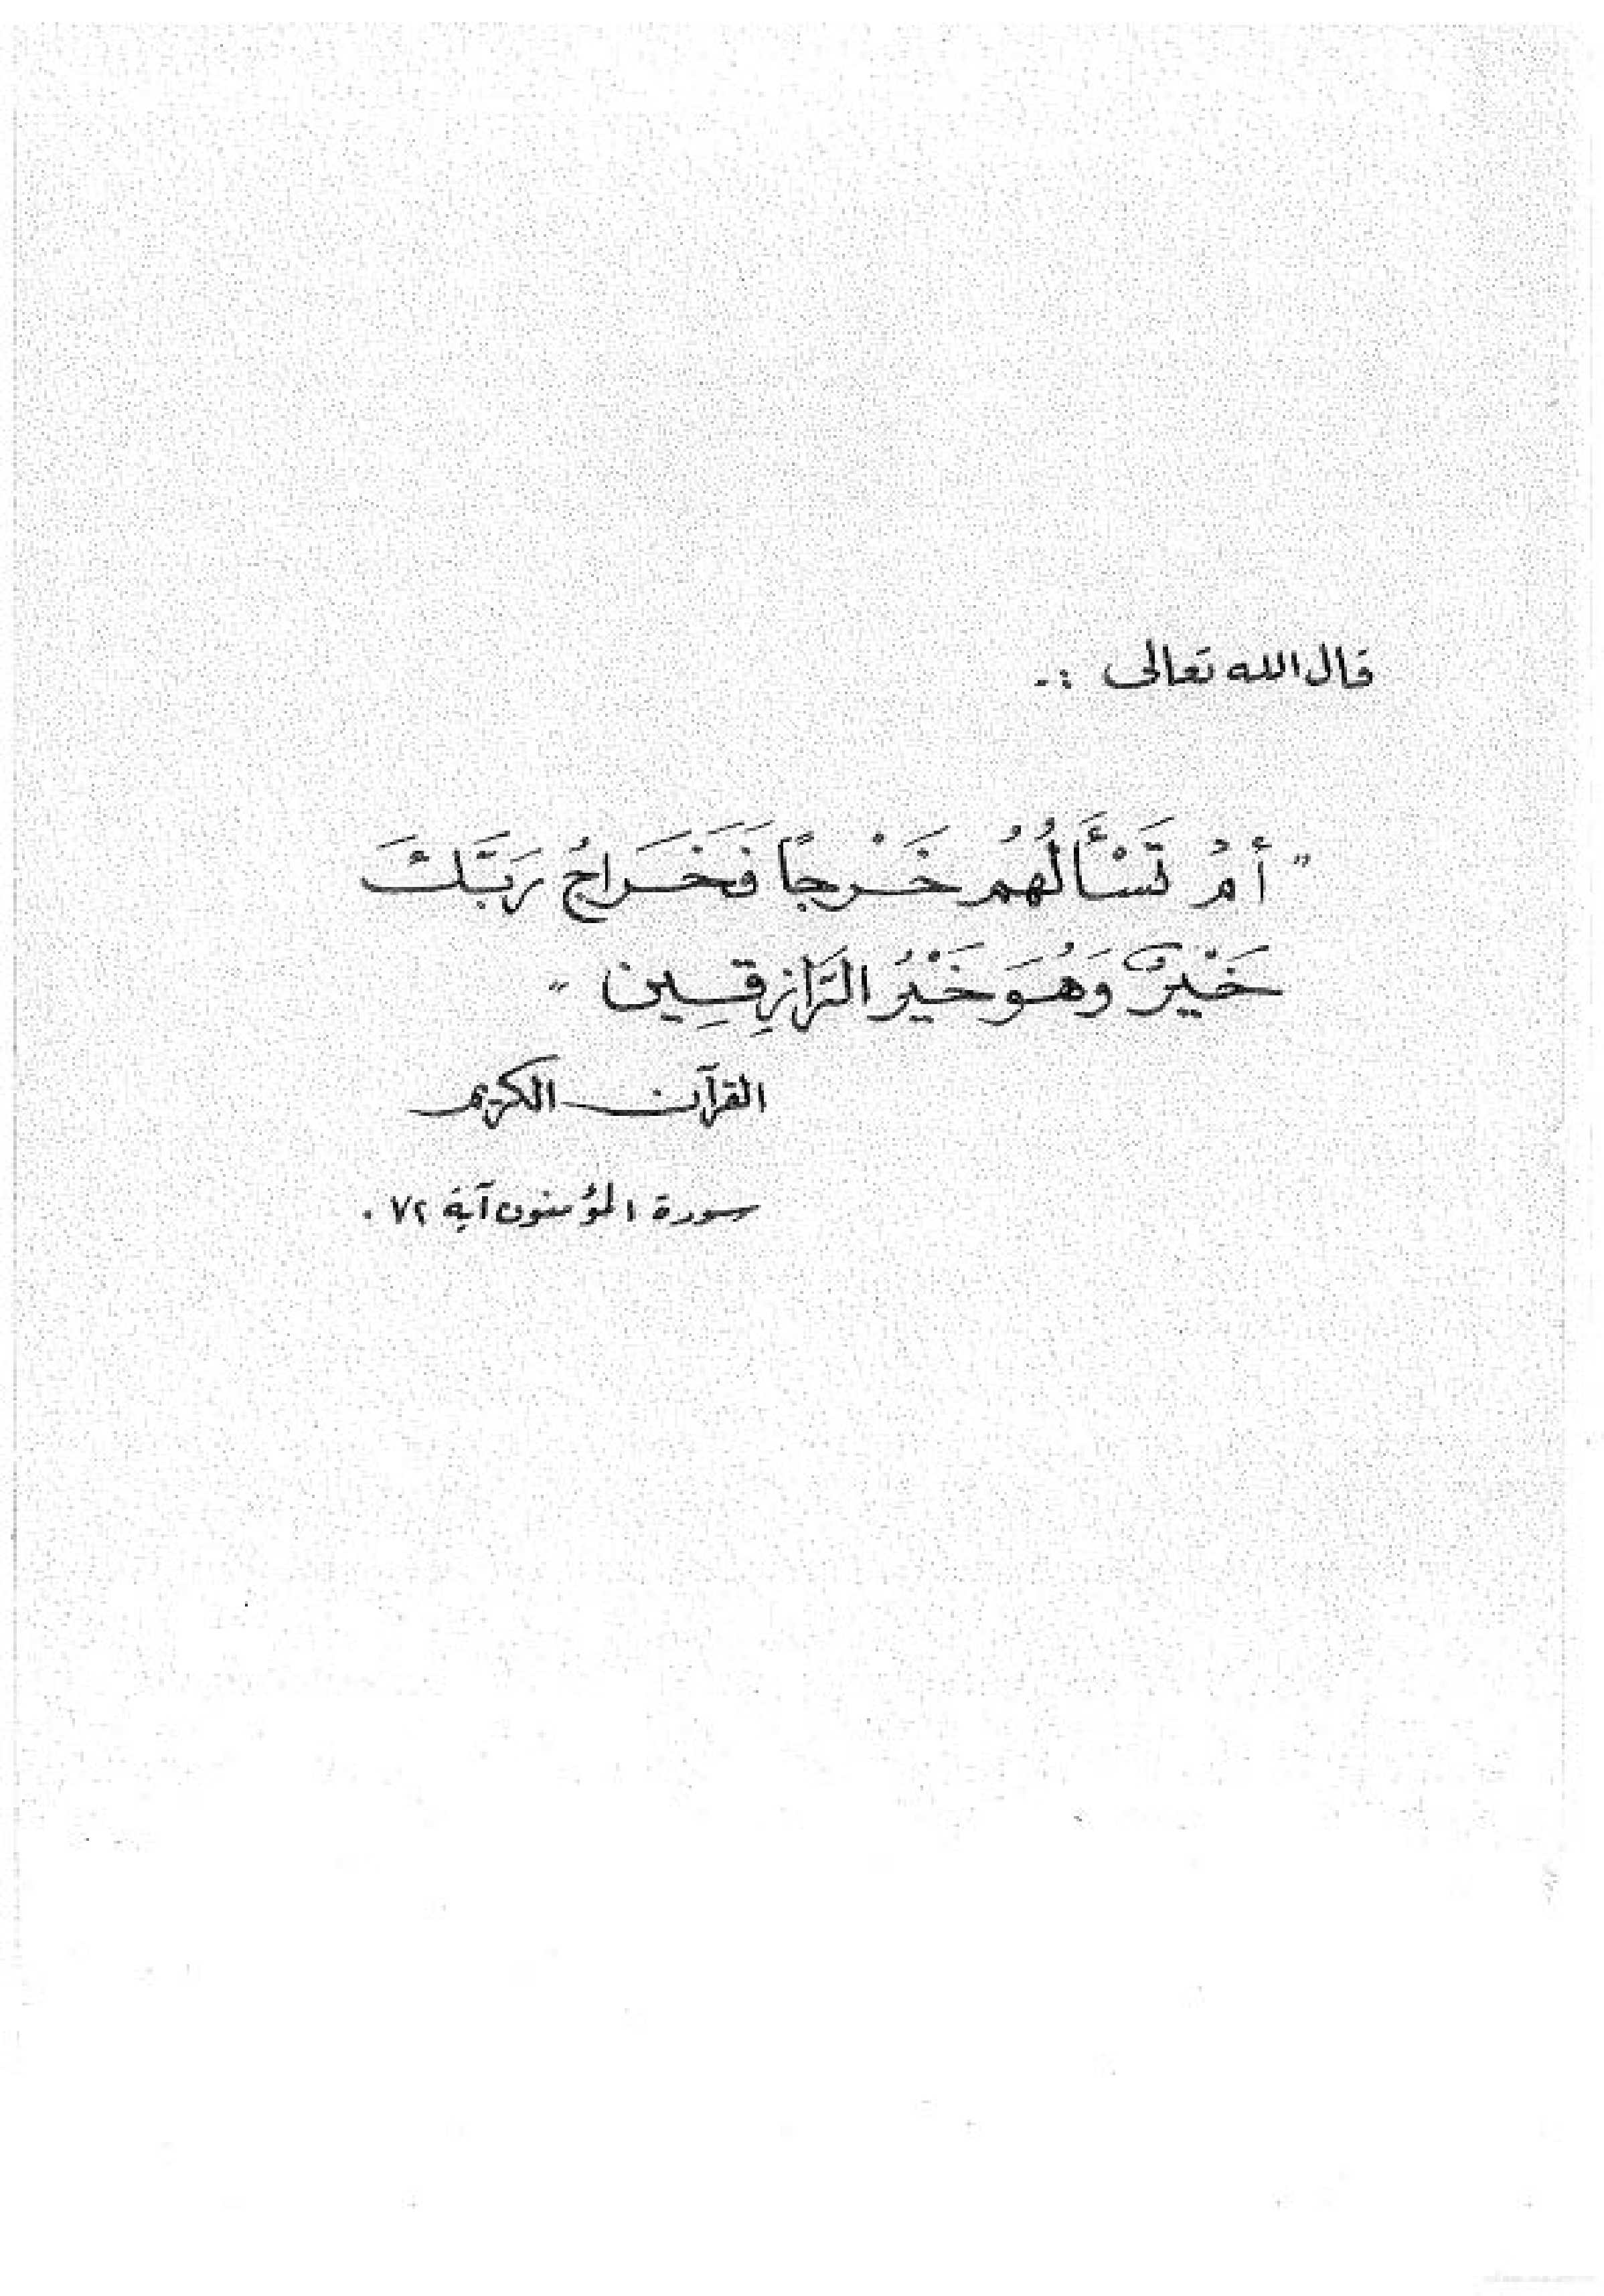 قال الله تعالى :-
" أَمْ تَسْأَلُهُم خَرْجاً فَخَرَاجُ رَبِّكَ
خَيْرٌ وَهُوَ خَيْرُ الرَّازِقِين "
القرآن الكريم
سورة المؤمنون آية ٧٢ .